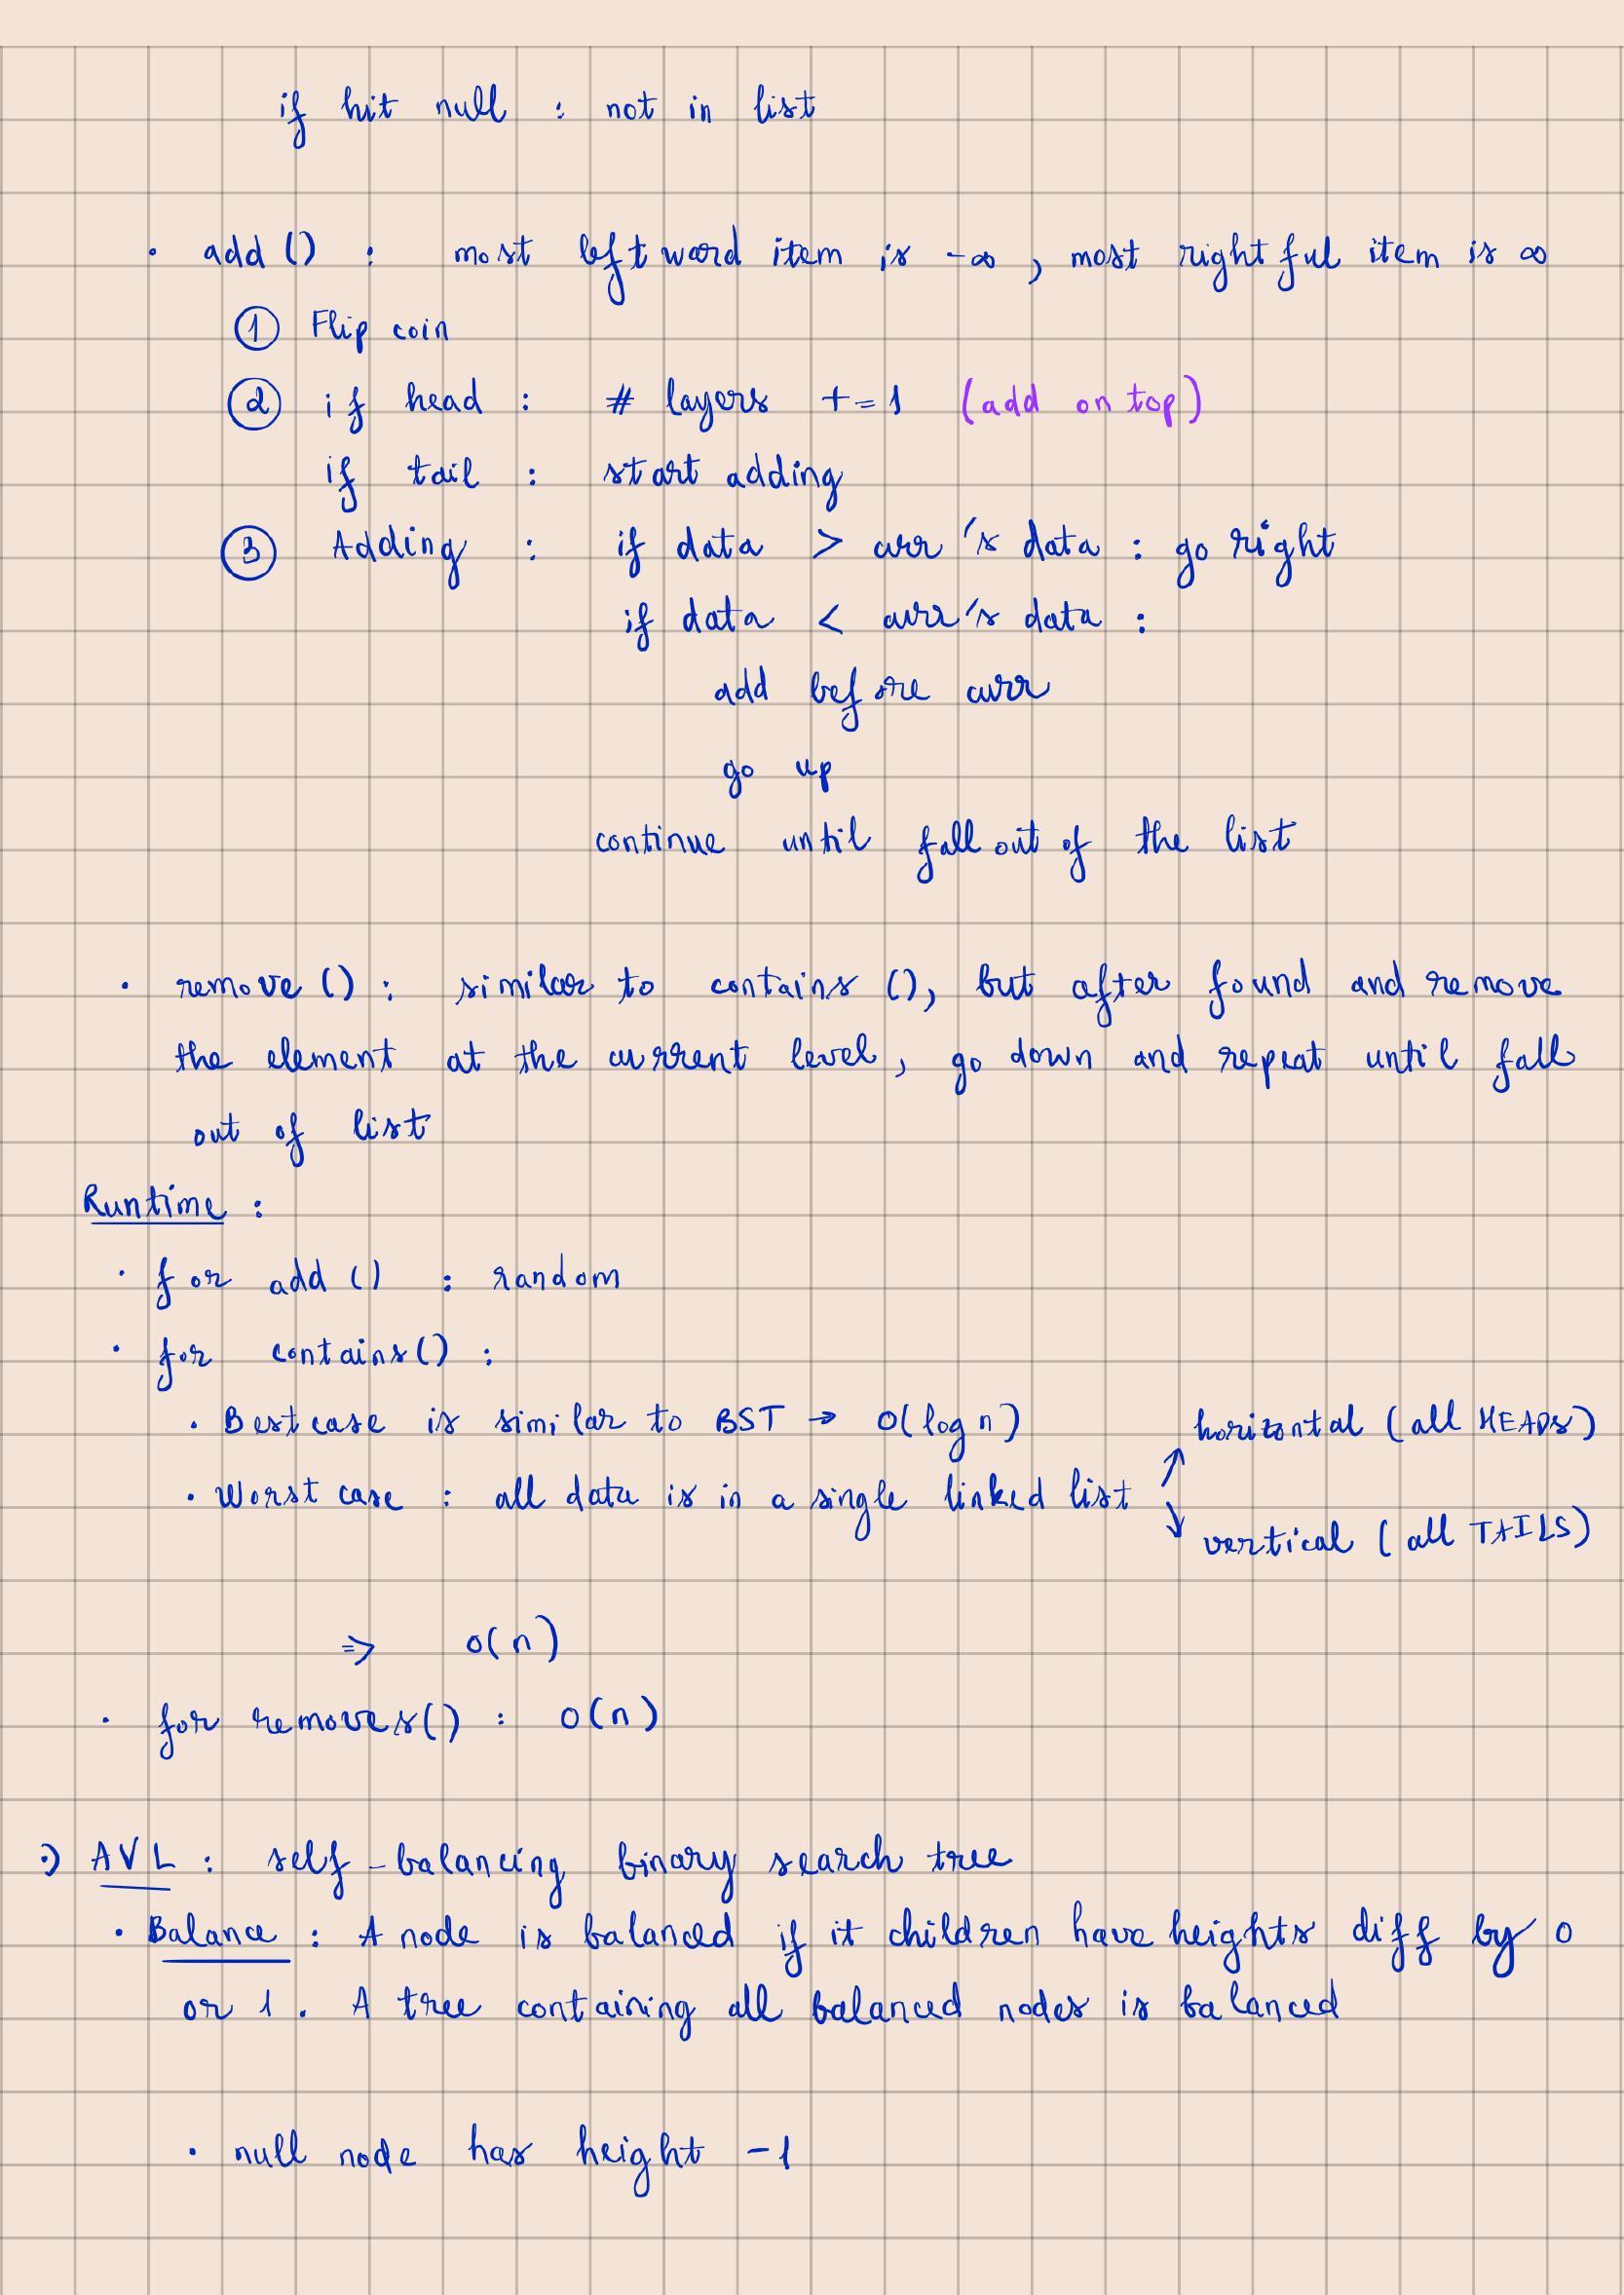 if hit null : not in list
· add () : most leftward item is -∞ , most rightful item is ∞
① Flip coin
② if head : # layers += 1 (add on top)
if tail : start adding
③ Adding : if data > curr's data : go right
if data < curr's data :
add before curr
go up
continue until fall out of the list
· remove () : similar to contains (), but after found and remove
the element at the current level, go down and repeat until fall
out of list
Runtime :
· for add () : random
· for contains() :
· Best case is similar to BST → O(log n)
horizontal (all HEADs)
· Worst case : all data is in a single linked list ↗ ↘
vertical (all TAILS)
⇒ O(n)
· for removes() : O(n)
:) AVL : self-balancing binary search tree
· Balance : A node is balanced if it children have heights diff by 0
or 1. A tree containing all balanced nodes is balanced
· null node has height -1